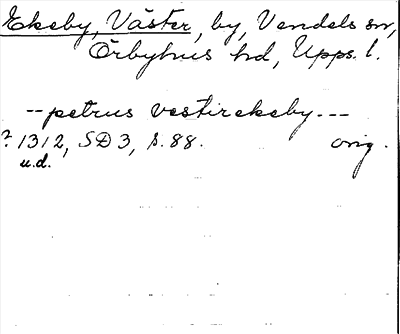 Ekeby, Väster, by, Vendels sn,
Örbyhus hd, Upps. l.
-- petrus vestirekeby ---
? 1312, SD 3, s. 88. orig.
u.d.